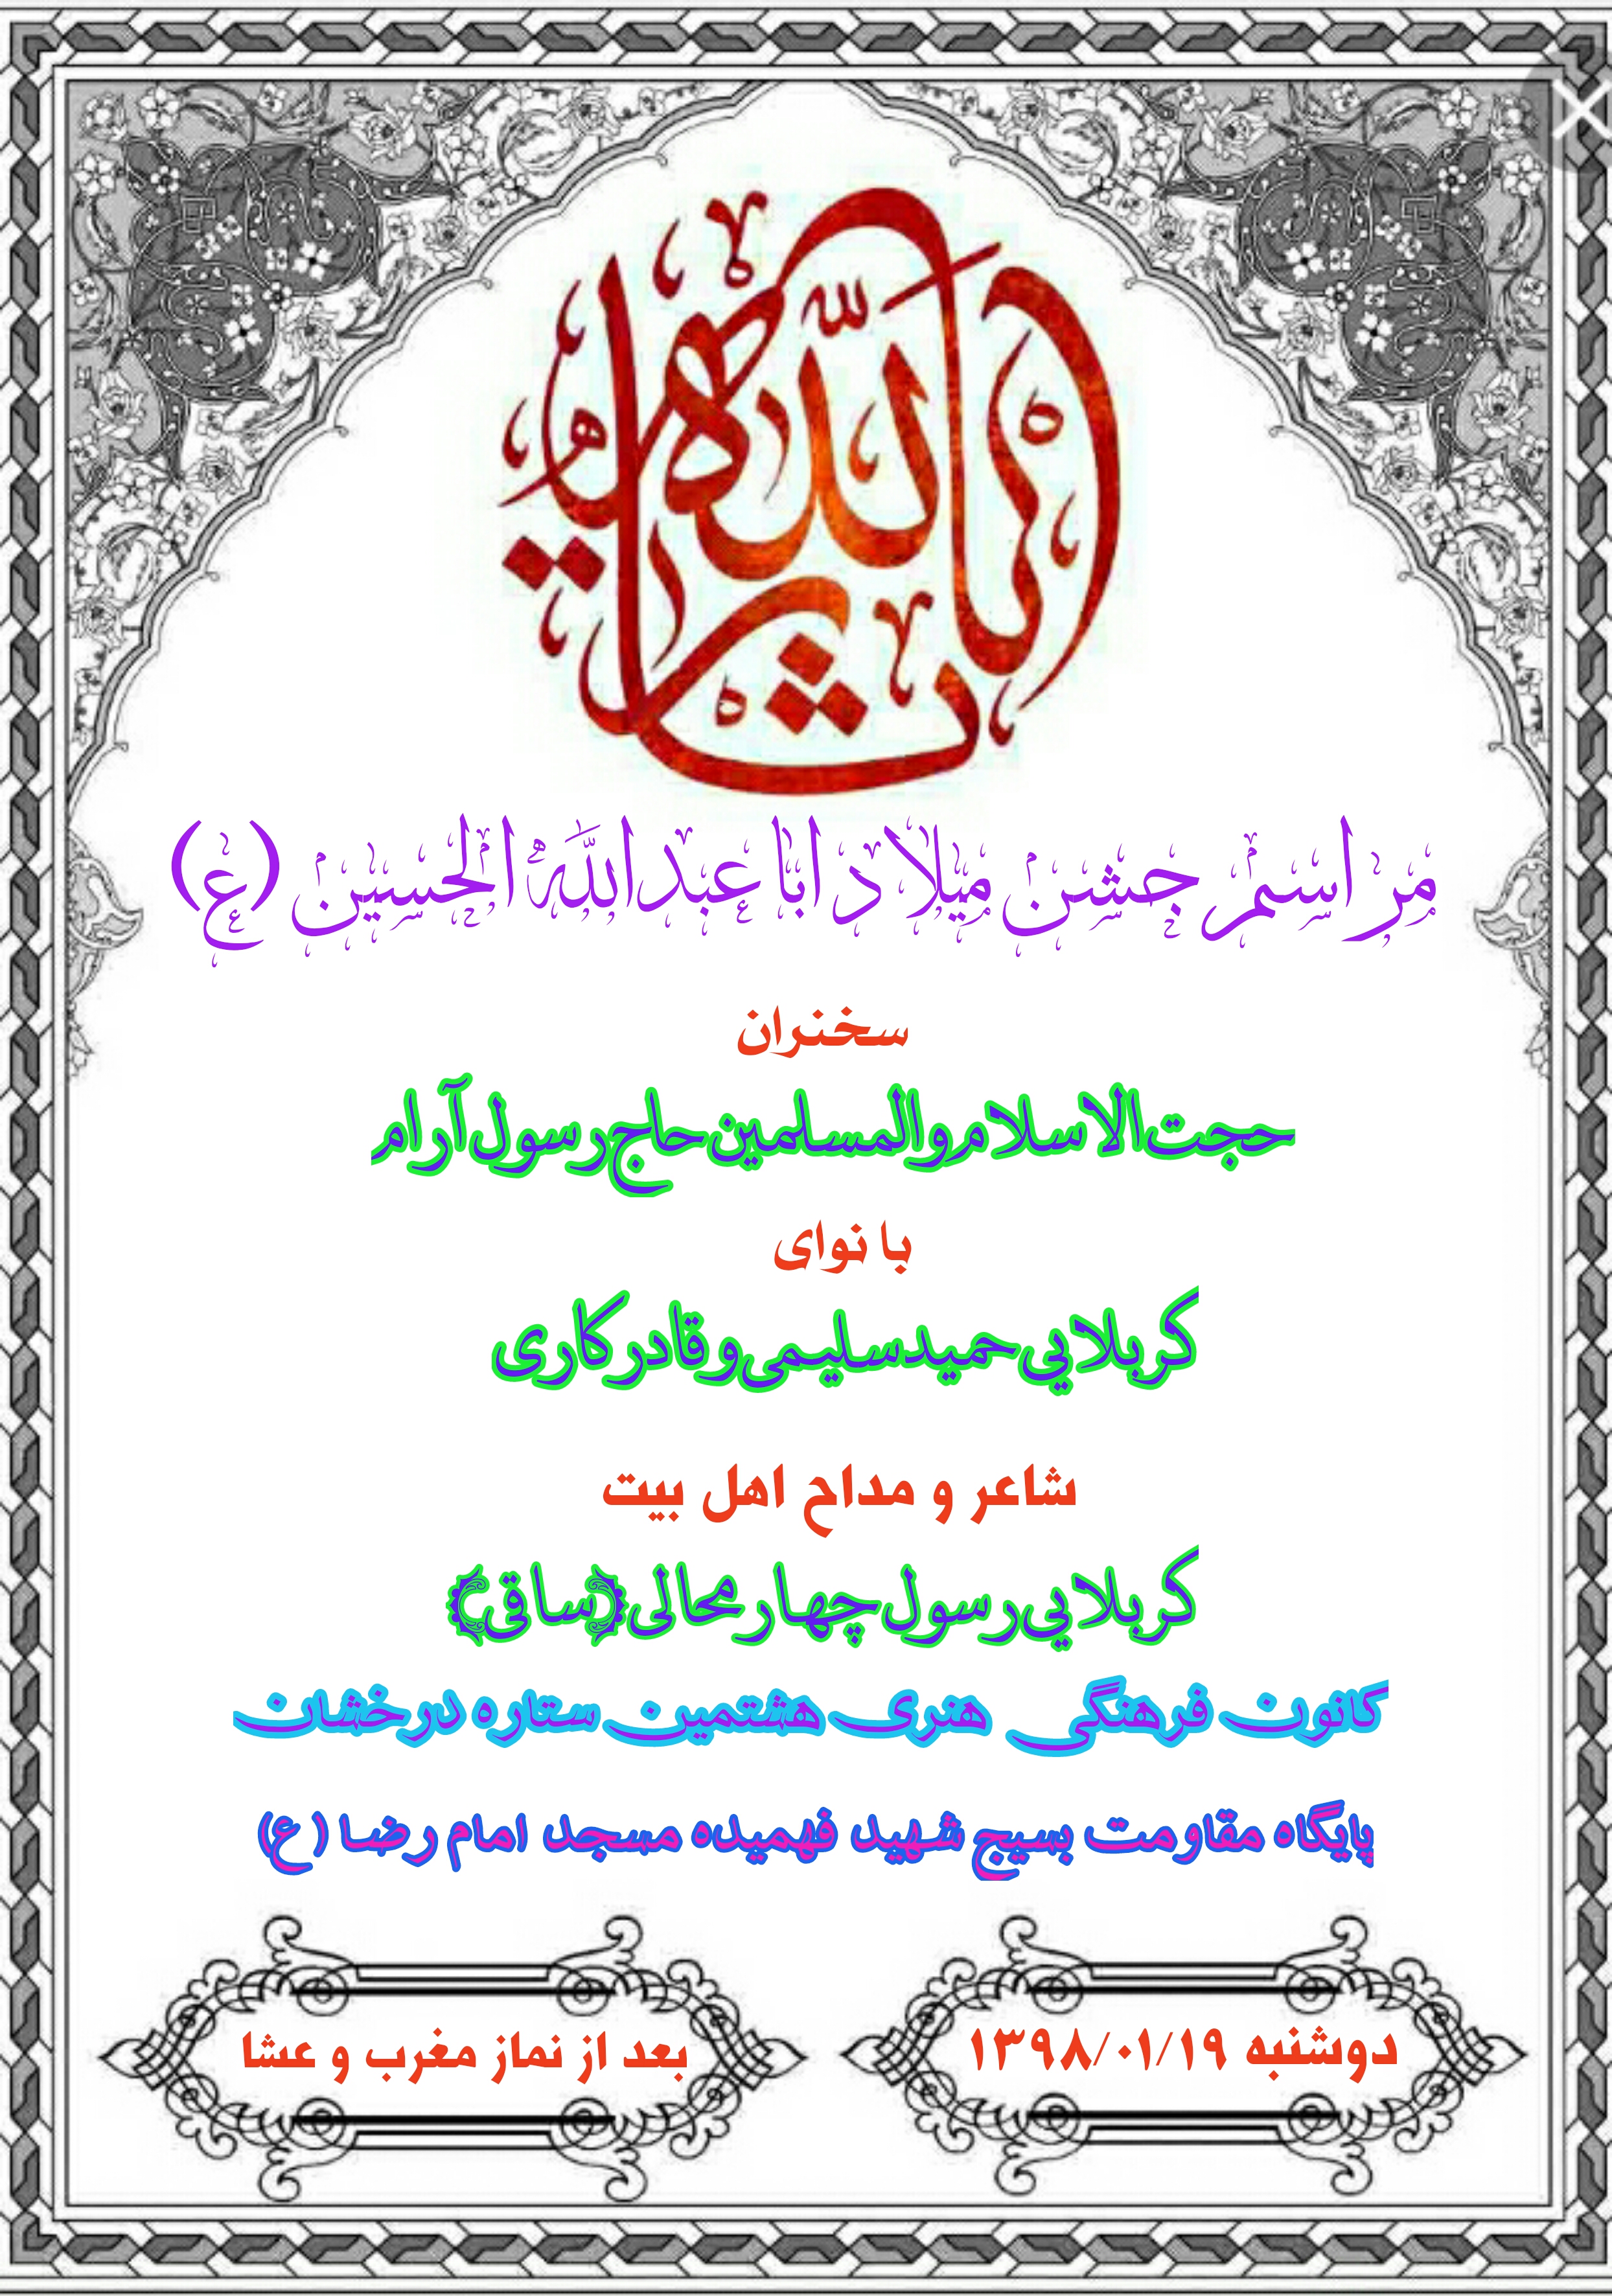 یا ثارالله
مراسم جشن میلاد ابا عبدالله الحسین (ع)
سخنران
حجت الاسلام والمسلمین حاج رسول آرام
با نوای
کربلایی حمید سلیمی و قادر کاری
شاعر و مداح اهل بیت
کربلایی رسول چهارمحالی (ساقی)
کانون فرهنگی هنری هشتمین ستاره درخشان
پایگاه مقاومت بسیج شهید فهمیده مسجد امام رضا (ع)
دوشنبه ۱۳۹۸/۰۱/۱۹
بعد از نماز مغرب و عشا